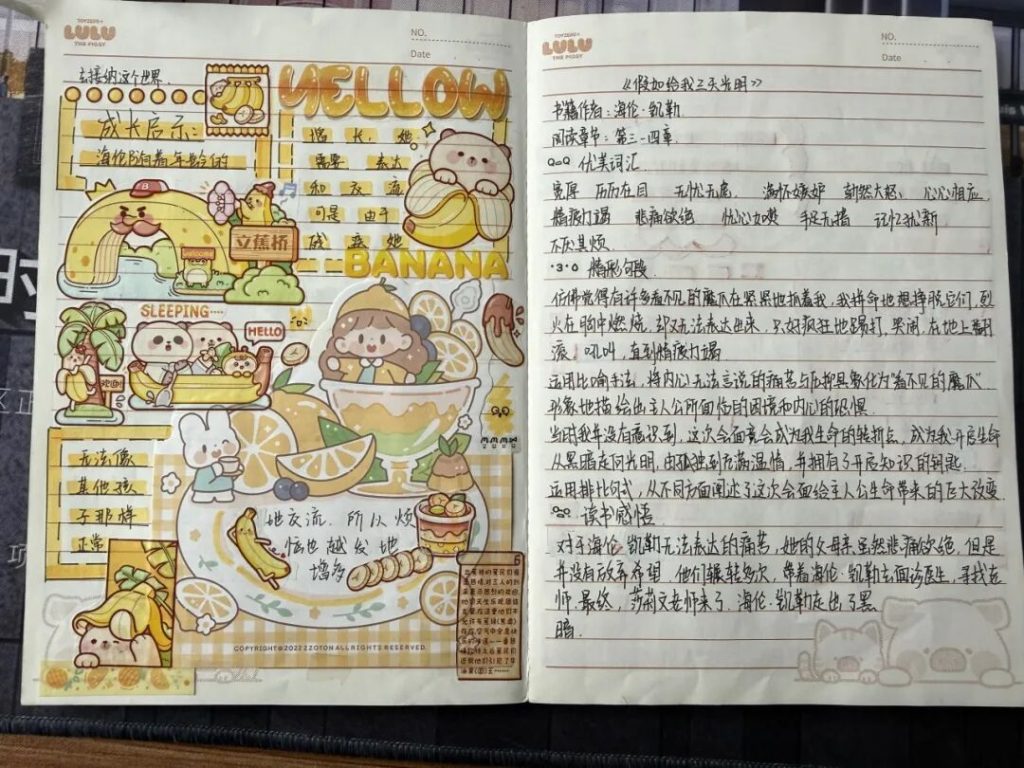 TOYZERO+
LULU
THE PIGGY
NO.
Date
去接纳这个世界.
成长启示:
海伦随着年龄的
YELLOW
增长,她
需要表达
和交流
可是由于
成疾她
BANANA
立蕉桥
SLEEPING····
HELLO
欢迎
无法像
其他孩
子那样
正常
地交流.所以烦
恼也越发地
增多
COPYRIGHT©2022 ZOTON ALL RIGHTS RESERVED.
TOYZERO+
LULU
THE PIGGY
NO.
Date
《假如给我三天光明》
书籍作者:海伦·凯勒
阅读章节:第三-四章.
优美词汇
宽厚 历历在目 无忧无虑 勃然大怒 心心相应
精疲力竭 悲痛欲绝 忧心如焚 手足无措 记忆犹新
不厌其烦
精彩句段
仿佛觉得有许多看不见的魔爪在紧紧地抓着我,我拼命地想挣脱它们,烈
火在胸中燃烧,却又无法表达出来,只好疯狂地踢打,哭闹,在地上翻
滚、吼叫,直到精疲力竭
运用比喻手法,将内心无法言说的痛苦与压抑具象化为"看不见的魔爪"
形象地描绘出主人公所面临的困境和内心的恐惧.
当时我并没有意识到,这次会面竟会成为我生命的转折点,成为我开启生命
从黑暗走向光明,由孤独到充满温情,并拥有了开启知识的钥匙.
运用排比句式,从不同方面阐述了这次会面给主人公生命带来的巨大改变
读书感悟
对于海伦·凯勒无法表达的痛苦,她的父母亲虽然悲痛欲绝,但是
并没有放弃希望.他们辗转多次,带着海伦·凯勒去面诊医生,寻找老
师.最终,莎莉文老师来了.海伦·凯勒走出了黑
暗.